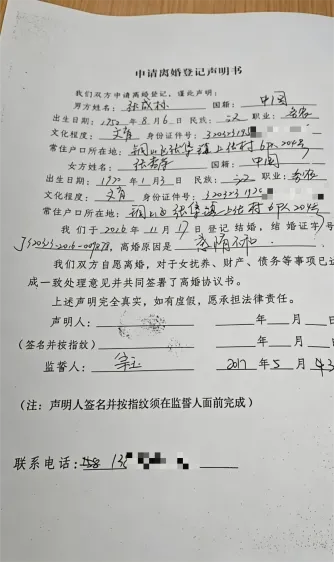 申请离婚登记声明书
我们双方申请离婚登记，谨此声明：
男方姓名： 国籍：中国
出生日期：1950年8月6日 民族：汉 职业：务农
文化程度：文盲 身份证件号：320323195
常住户口所在地：铜山区张集镇上张村6队204号
女方姓名： 国籍：中国
出生日期：1950年1月3日 民族：汉 职业：务农
文化程度：文盲 身份证件号：320323195
常住户口所在地：铜山区张集镇上张村6队204号
我们于2016年11月17日登记结婚，结婚证字号
J320323-2016-009878，离婚原因是感情不和．
我们双方自愿离婚，对子女抚养、财产、债务等事项已达
成一致处理意见并共同签署了离婚协议书。
上述声明完全真实，如有虚假，愿承担法律责任。
声明人： 年 月 日
（签名并按指纹） 年 月 日
监督人： 2017年5月
（注：声明人签名并按指纹须在监督人面前完成）
联系电话：